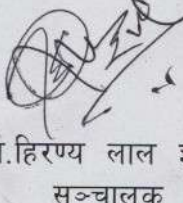 .हिरण्य लाल
सञ्चालक